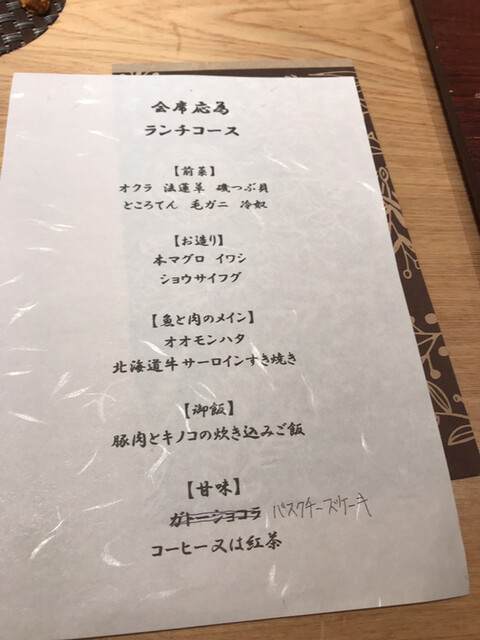 会席応為
ランチコース
【前菜】
オクラ 法蓮草 磯つぶ貝
ところてん 毛ガニ 冷奴
【お造り】
本マグロ イワシ
ショウサイフグ
【魚と肉のメイン】
オオモンハタ
北海道牛サーロインすき焼き
【御飯】
豚肉とキノコの炊き込みご飯
【甘味】
ガトーショコラ バスクチーズケーキ
コーヒー又は紅茶